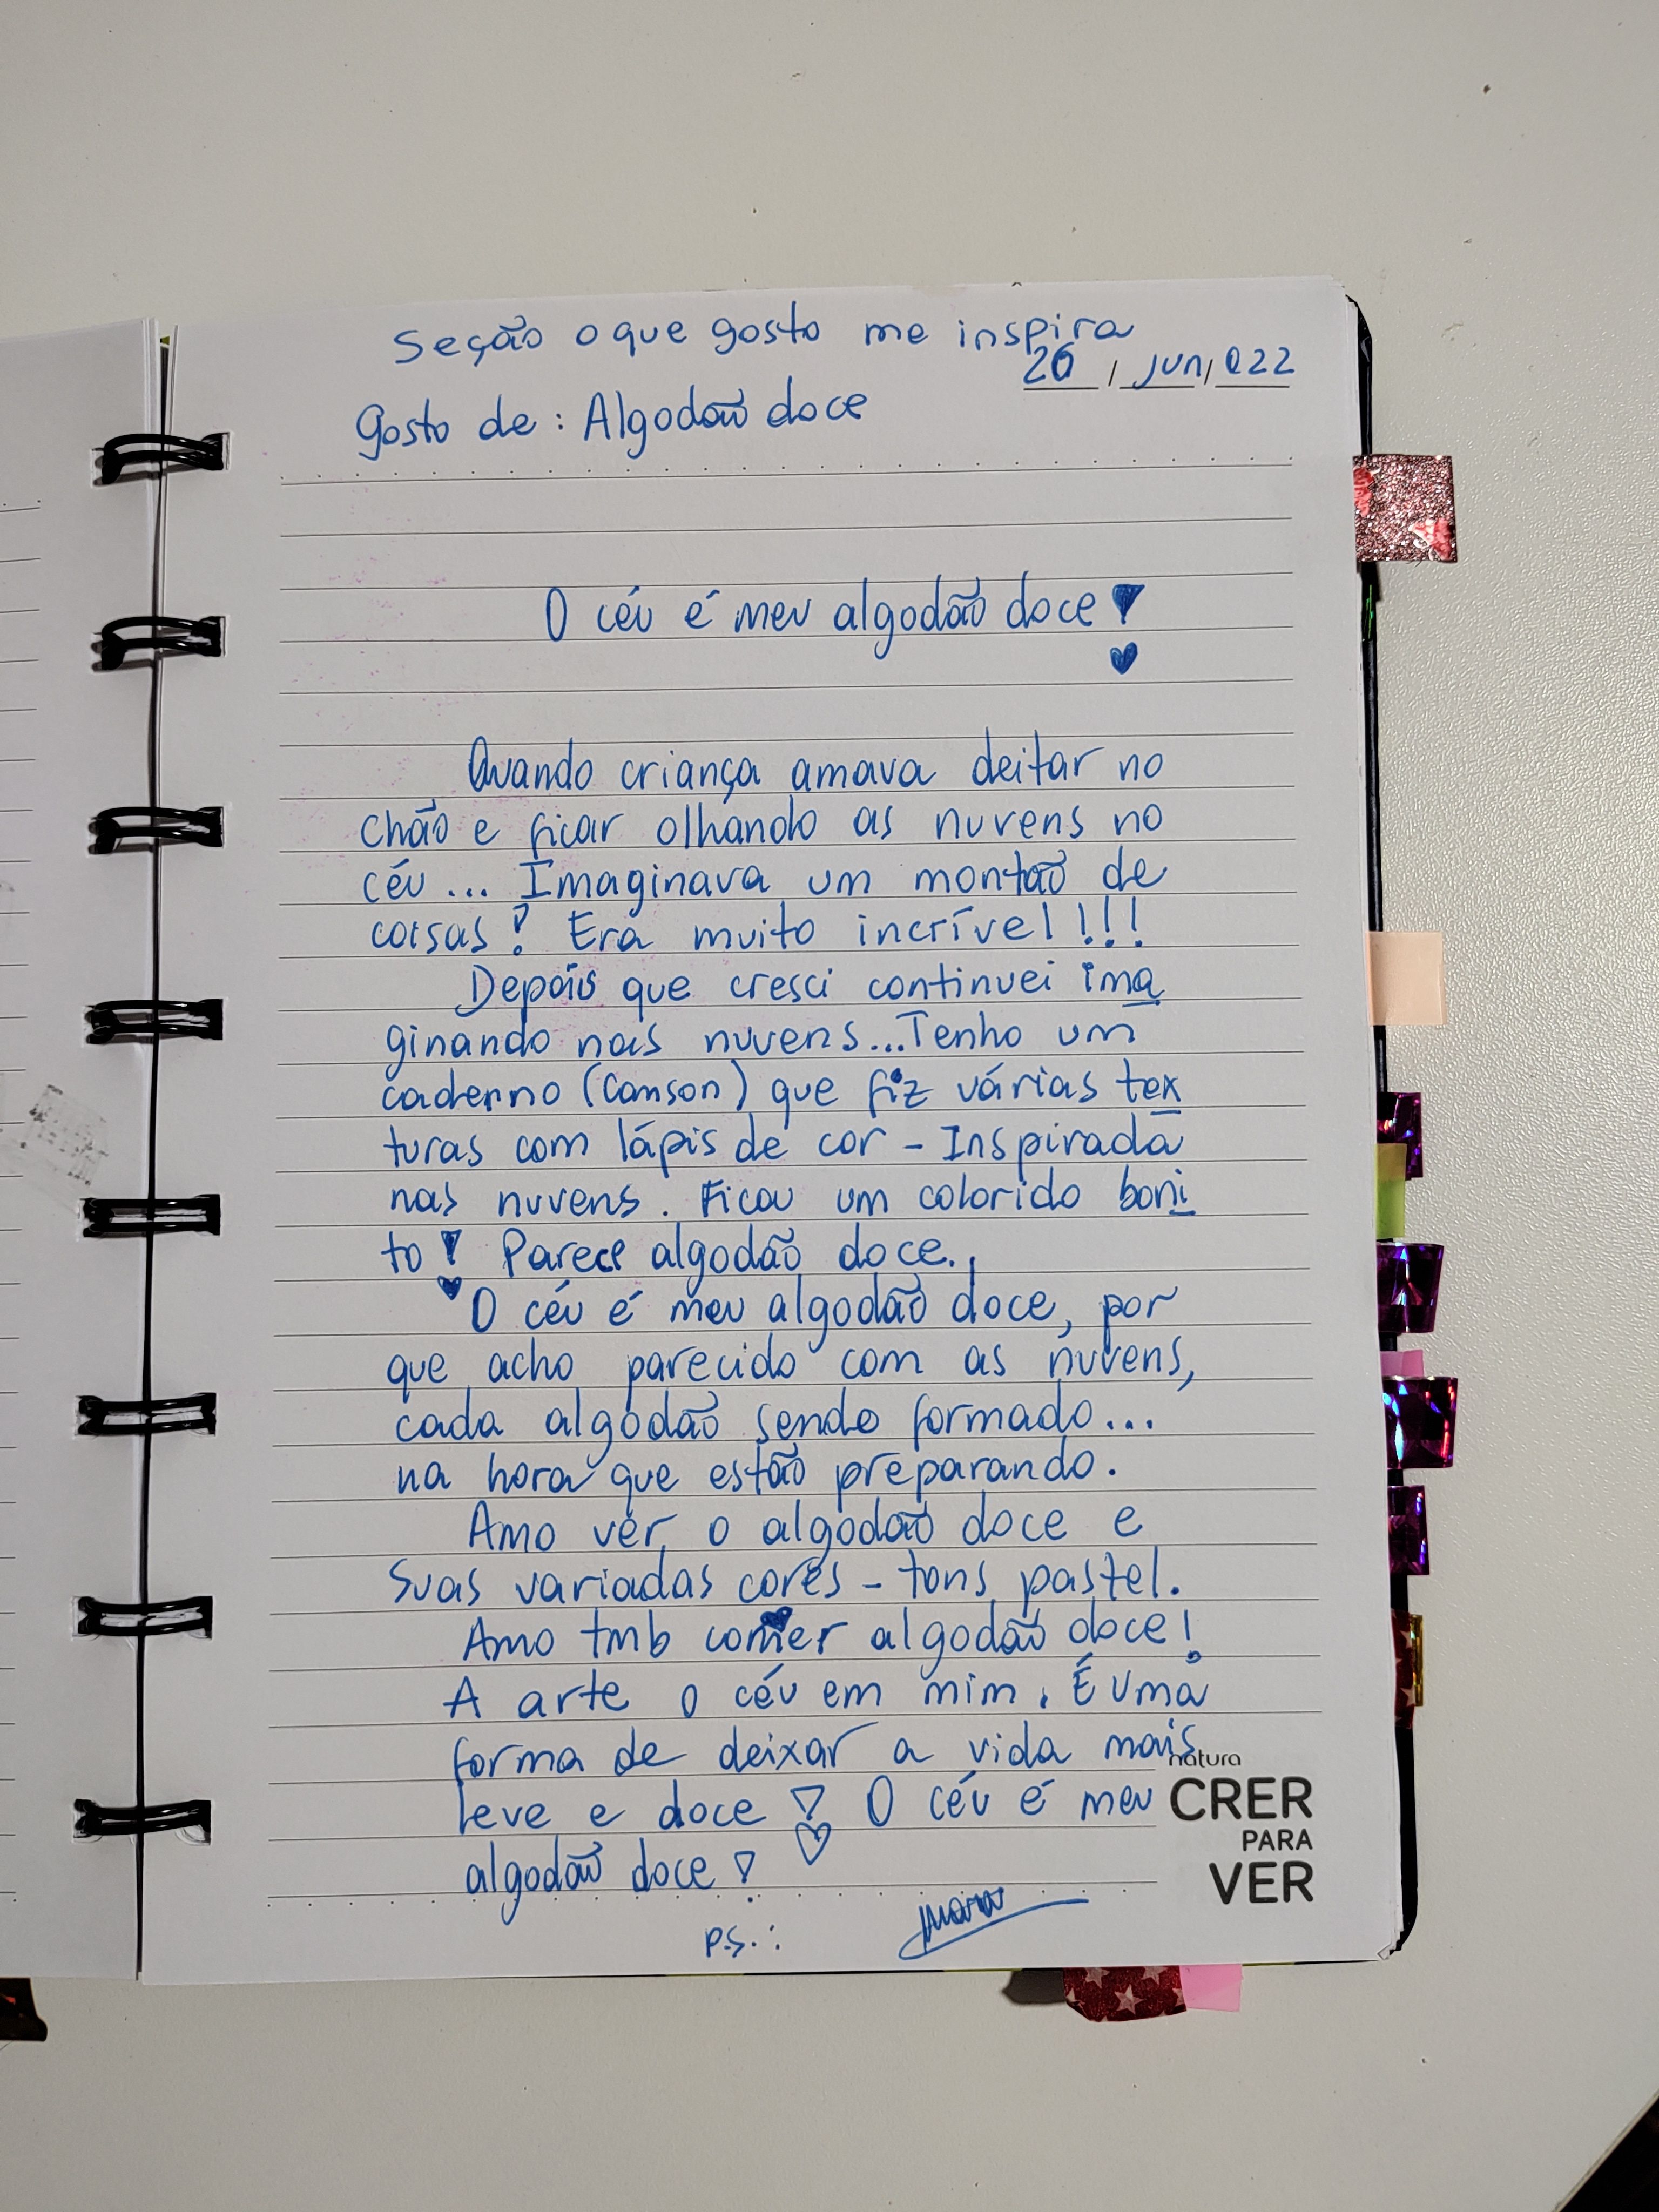 Seção o que gosto me inspira
26 / Jun / 022
Gosto de : Algodão doce
O céu é meu algodão doce!
Quando criança amava deitar no
chão e ficar olhando as nuvens no
céu... Imaginava um montão de
coisas! Era muito incrível!!!
Depois que cresci continuei ima
ginando nas nuvens...Tenho um
caderno (Canson) que fiz várias tex
turas com lápis de cor - Inspirada
nas nuvens. Ficou um colorido boni
to! Parece algodão doce..
O céu é meu algodão doce, por
que acho parecido com as nuvens,
cada algodão sendo formado...
na hora que estão preparando.
Amo ver o algodão doce e
suas variadas cores - tons pastel.
Amo tmb comer algodão doce!
A arte o céu em mim. É uma
forma de deixar a vida mais
leve e doce! O céu é meu
algodão doce!
P.S.:
natura
CRER
PARA
VER